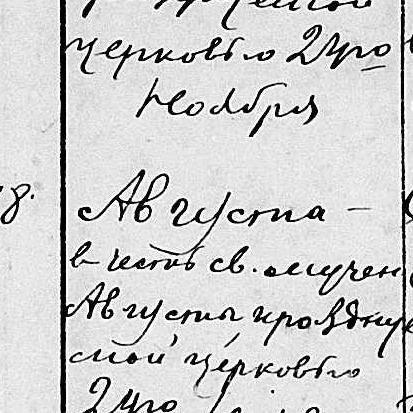 церковью 24го
Ноября
8.
Августа —
в честь св. мучен
Августы праздну
емой церковью
24го